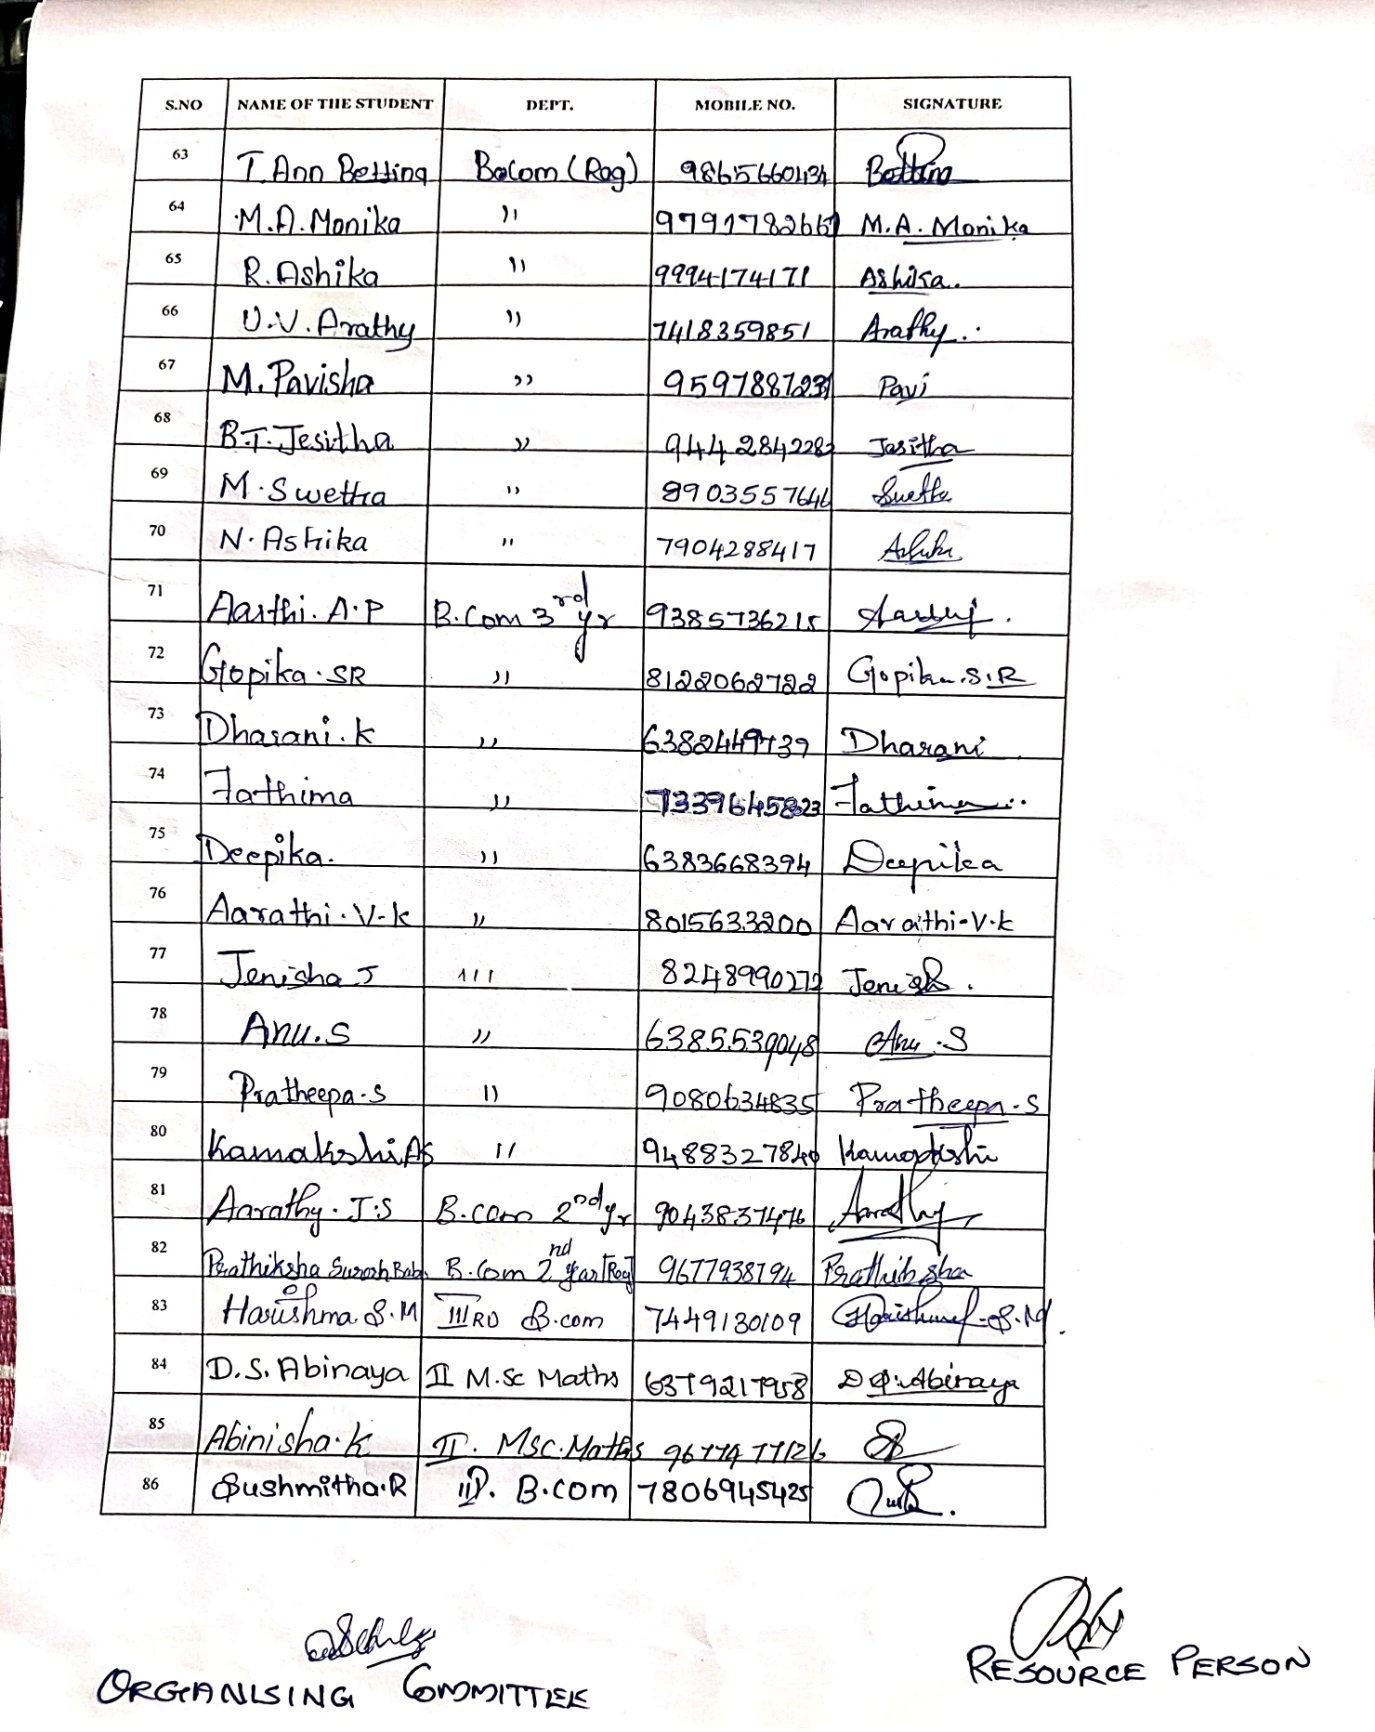 S.NO NAME OF THE STUDENT DEPT. MOBILE NO. SIGNATURE
63 T. Ann Betting B.com (Reg) 9865660434 Betting
64 M.A. Monika " 9791782667 M.A. Monika
65 R. Ashika " 9994174171 Ashika.
66 U.V. Arathy " 7418359851 Arathy.
67 M. Pavisha " Pavi
68 B.T. Jesitha " 9442842282 Jesitha
69 M. Swetha " 8903557646 Swetha
70 N. Ashika " 7904288417 Ashika
71 Aarthi. A.P B.Com 3rd yr 9385736215
72 Gopika. SR " 8122062722 Gopika.S.R
73 Dharani.k " 6382449739 Dharani
74 Fathima " 7339645823 Fathima
75 Deepika. " 6383668394 Deepika
76 Aarathi.V-k " 8015633200 Aarathi-V.k
77 Jenisha J "' 8248990272
78 Anu.S " 6385539048 Anu.S
79 Pratheepa.s " 9080634835 Pratheepa.s
80 Kamakshi AS " 9488327840 Kamakshi
81 Aarathy. J.S B.com 2nd yr 9043837476 Aarathy
82 Prathiksha Suresh Babu B.Com 2nd year [Reg] 9677938794 Prathiksha
83 Harishma.S.M IIIRD B.com 7449130109
84 D.S. Abinaya II M.Sc Maths 6379217958 D.S.Abinaya
85 Abinisha.k II. MSC.Maths 9677477126
86 Sushmitha.R III. B.com 7806945425
ORGANISING COMMITTEE
RESOURCE PERSON